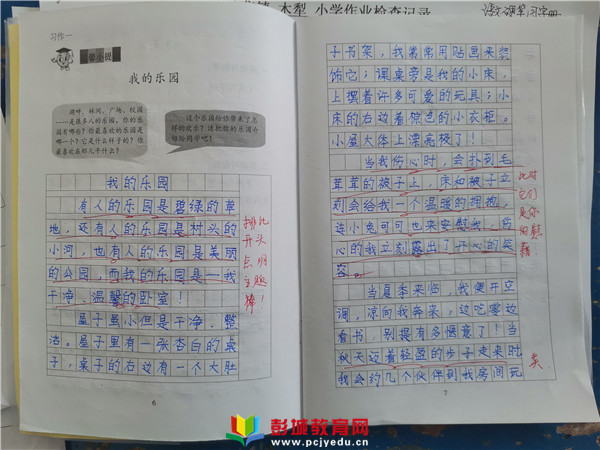 小学作业检查记录
习作一
我的乐园
湖畔、林间、广场、校园
……是很多人的乐园,你的乐
园有哪些?你最喜欢的乐园是
哪一个?它是什么样子的?你
最喜欢在那儿干什么?
这个乐园给你带来了怎
样的欢乐?请把你的乐园介
绍给同学吧!
我的乐园
有人的乐园是碧绿的草
地,还有人的乐园是村头的
小河,也有人的乐园是美丽
的公园,而我的乐园是一我
干净、温馨的卧室!
屋子虽小但是干净、整
洁。屋里有一张杏白的桌
子,桌子的右边有一个大肚
排比
开头
点明
主题
棒!
6
子书架,我常常用贴画来装
饰它;课桌旁是我的小床,
上摆着许多可爱的玩具;小
床的右边着棕色的小衣柜。
小屋大体上漂亮极了!
当我伤心时,会扑到毛
茸茸的被子上,床和被子立
刻会给我一个温暖的拥抱,
连小兔可可也来安慰我,伤
心的我立刻露出了开心的笑
容。
当夏季来临,我便开空
调,凉向我奔来,边吃零边
看书,别提有多惬意了!当
秋天迈着轻盈的步子走来时
我会约几个伙伴到我房间玩
此时
它们
是你
的慰
藉。
7
彭城教育网
www.pcjyedu.cn